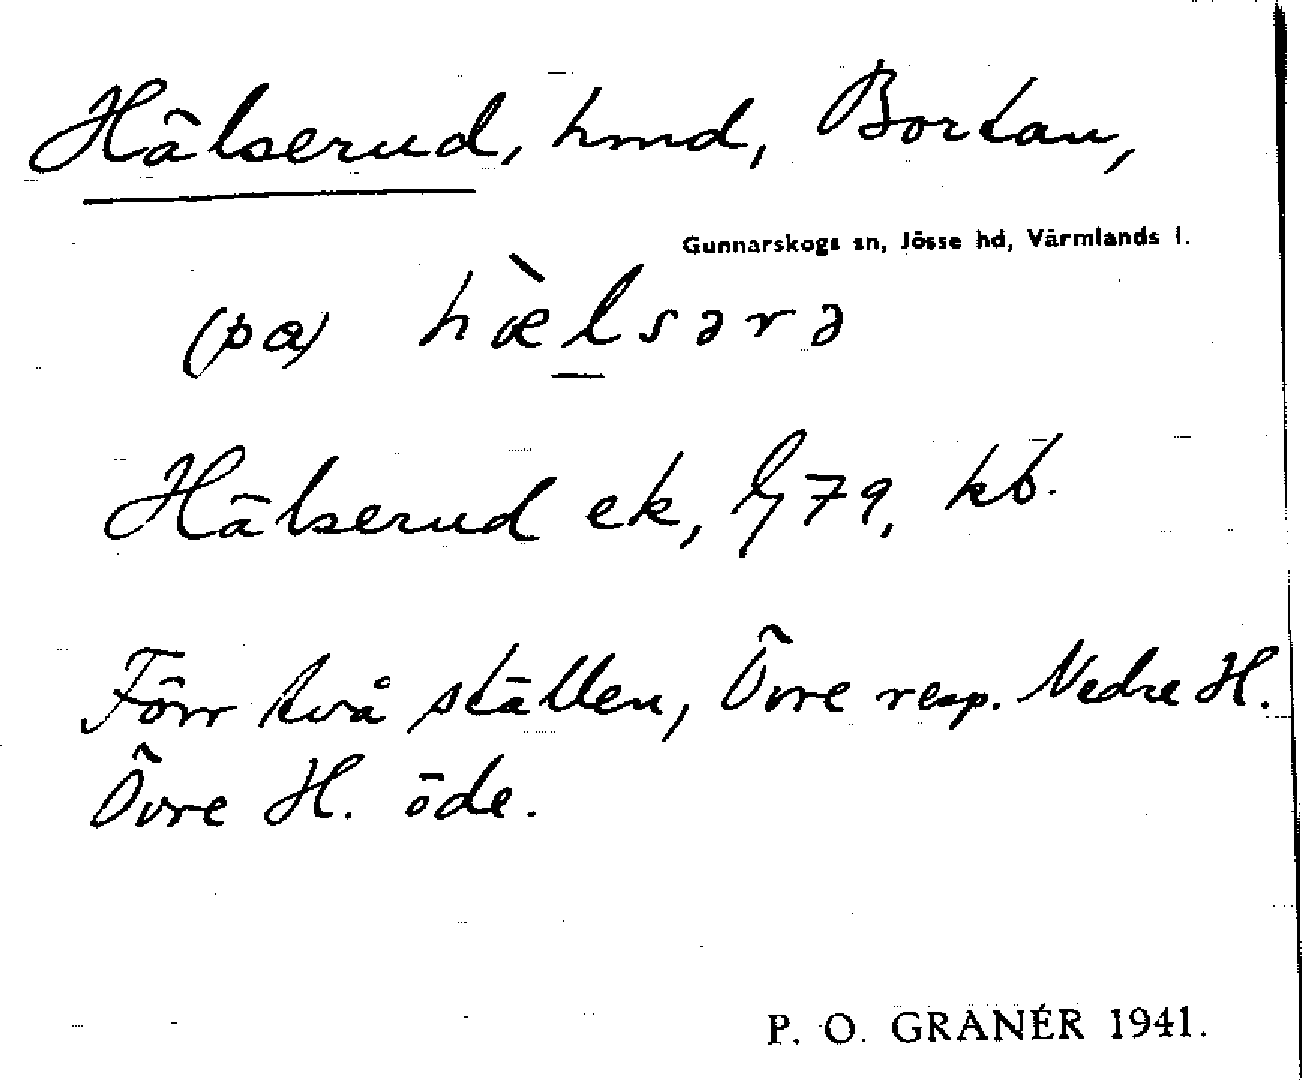 Hälserud, hmd, Bortan,
Gunnarskogs sn, Jösse hd, Värmlands l.
(pɑ) hæ̀lsərə
Hälserud ek, G79, kb.
Förr två ställen, Övre resp. Nedre H.
Övre H. öde.
P. O. GRANÉR 1941.